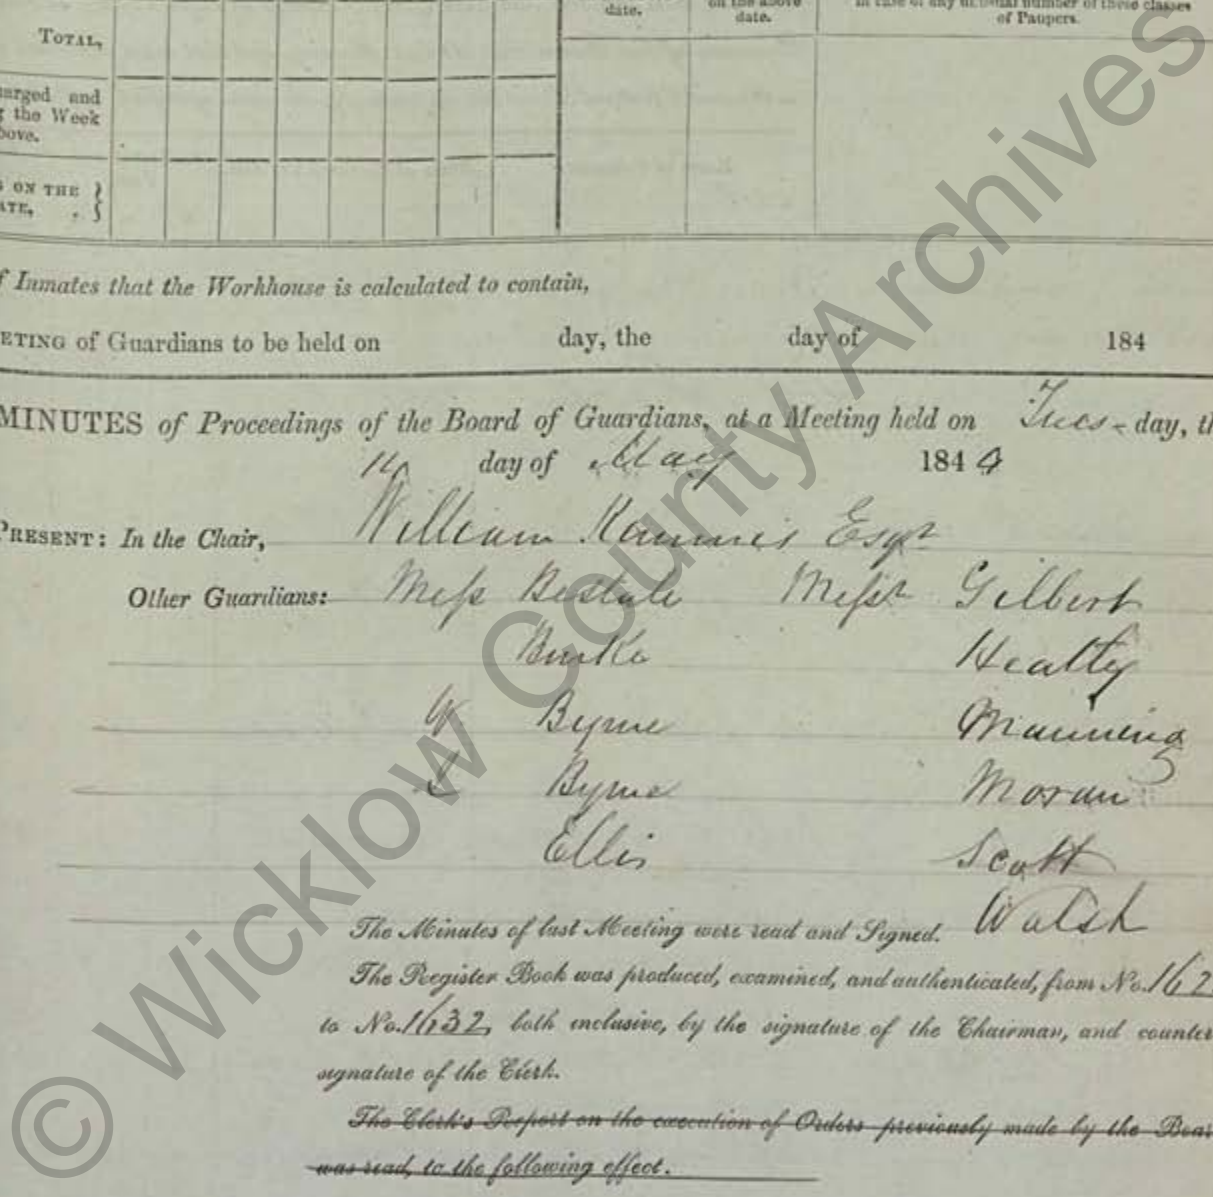 date.
on the above
date.
in case of any unusual number of these classes
of Paupers.
TOTAL,
arged and
the Week
bove.
ON THE
ATE,
f Inmates that the Workhouse is calculated to contain,
ETING of Guardians to be held on day, the day of 184
MINUTES of Proceedings of the Board of Guardians, at a Meeting held on Tues- day, th
day of May 1844
PRESENT: In the Chair, William Esqr
Other Guardians: Mess Messr Gilbert
Burke Heatly
Byrne Manning
Byrne Moran
Ellis Scott
Walsh
The Minutes of last Meeting were read and Signed.
The Register Book was produced, examined, and authenticated, from No. 162
to No. 1632, both inclusive, by the signature of the Chairman, and counter
signature of the Clerk.
The Clerk's Report on the execution of Orders previously made by the Boar
was read, to the following effect.
© Wicklow County Archives